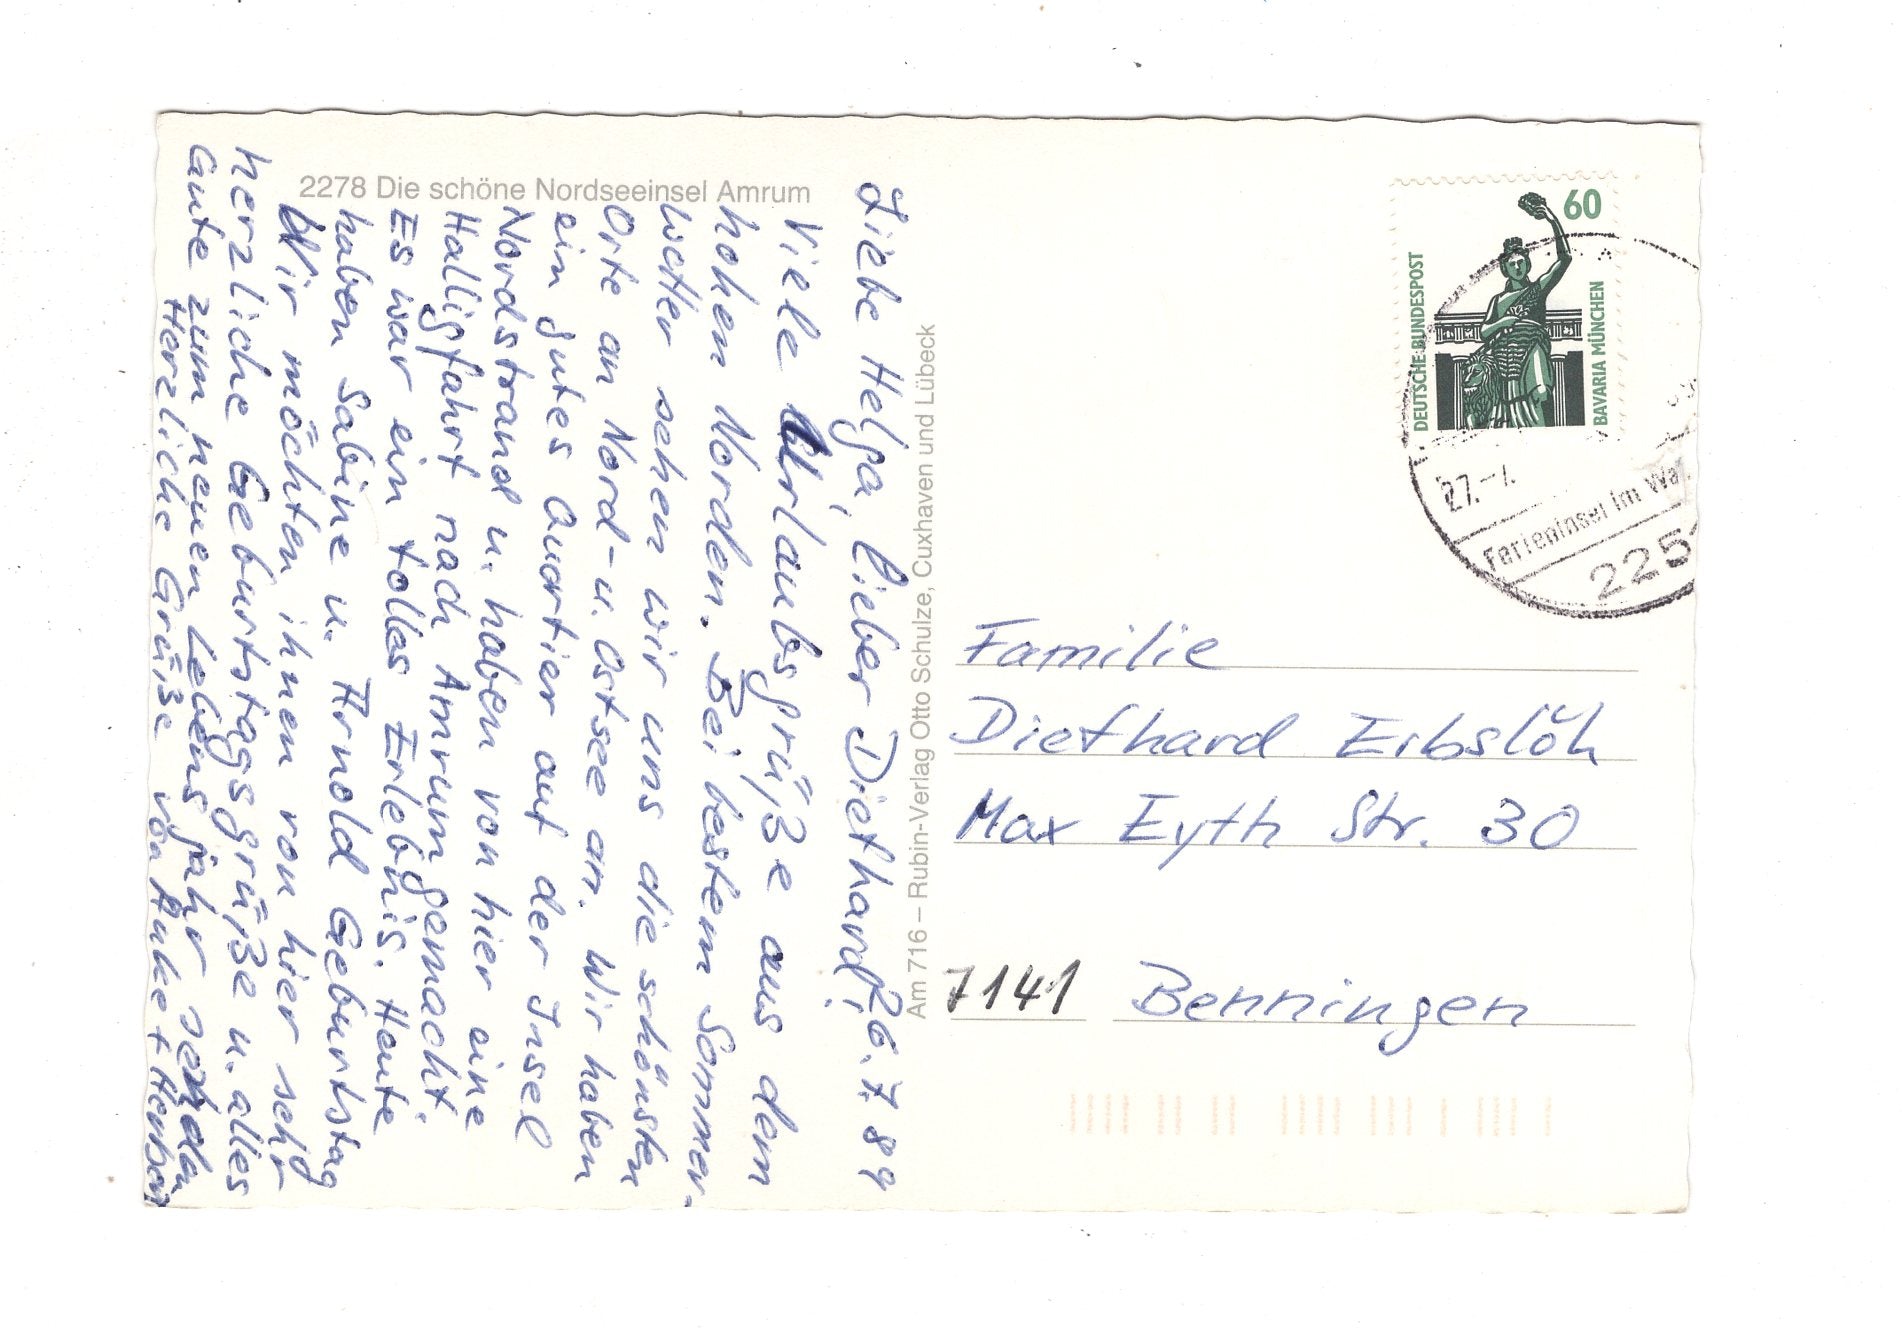 2278 Die schöne Nordseeinsel Amrum
26.7.89
Liebe Helga, lieber Diethard!
Viele Urlaubsgrüße aus dem
hohen Norden. Bei bestem Sommer-
wetter sehen wir uns die schönsten
Orte an Nord- u. Ostsee an. Wir haben
ein gutes Quartier auf der Insel
Nordstrand u. haben von hier eine
Halligfahrt nach Amrum gemacht.
Es war ein tolles Erlebnis. Heute
haben Sabine u. Arnold Geburtstag
Wir möchten ihnen von hier sehr
herzliche Geburtstagsgrüße u. alles
Gute zum neuen Lebensjahr senden
Herzliche Grüße von Anke + Herbert
Am 716 – Rubin-Verlag Otto Schulze, Cuxhaven und Lübeck
60
DEUTSCHE BUNDESPOST
BAVARIA MÜNCHEN
27.-7.
Ferieninsel im Wat
2251
Familie
Diethard Erbslöh
Max Eyth Str. 30
7141 Benningen